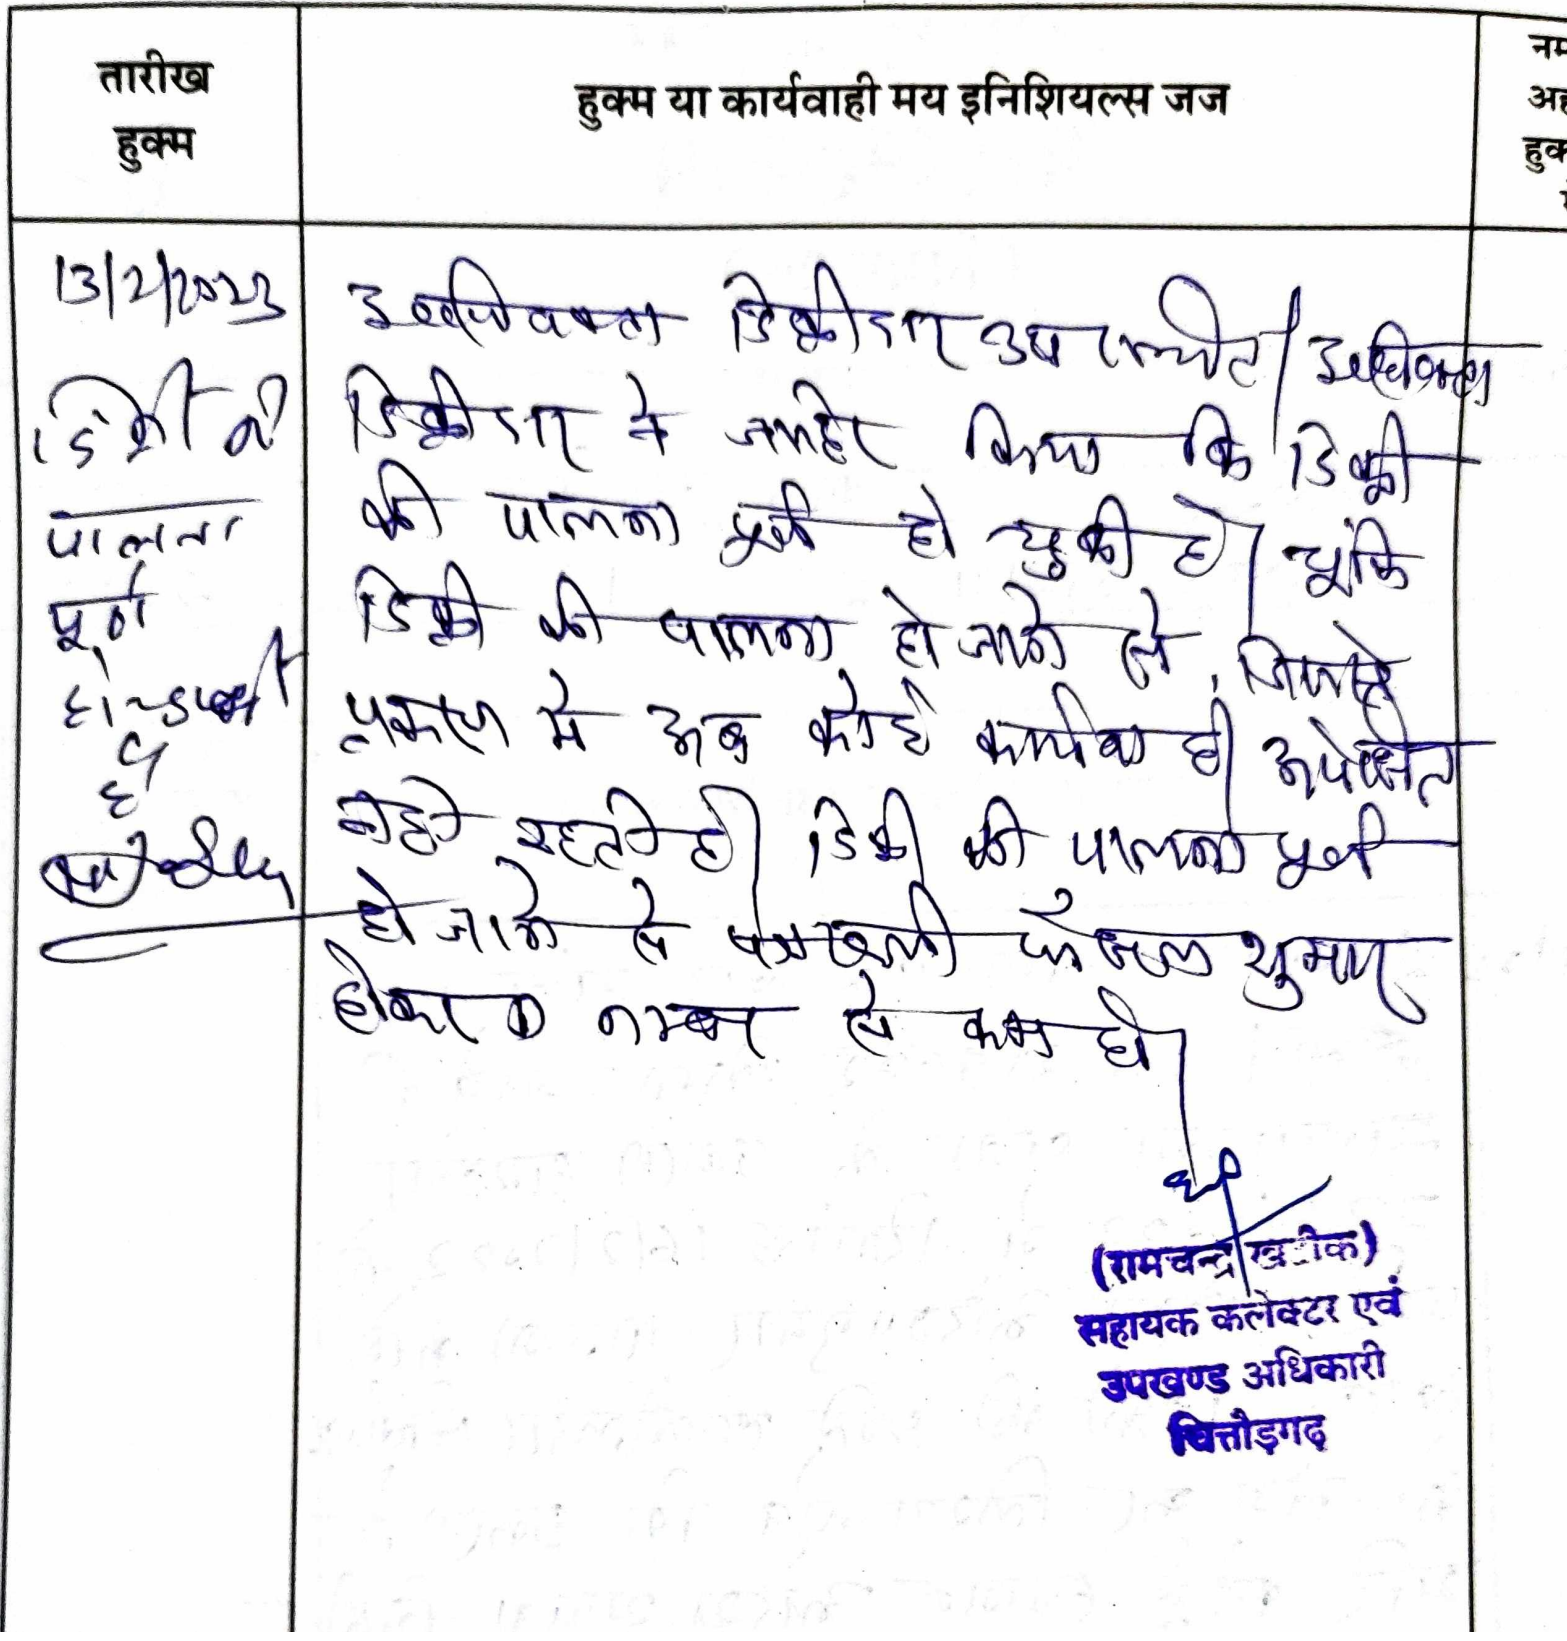 तारीख
हुक्म
हुक्म या कार्यवाही मय इनिशियल्स जज
नम
अह
हुक
13/2/2023
डिक्री की
पालना
पूर्ण
हो चुकी
है
अधिवक्ता डिक्रीदार उपस्थित। अधिवक्ता
डिक्रीदार ने जाहिर किया कि डिक्री
की पालना पूर्ण हो चुकी है। चूंकि
डिक्री की पालना हो जाने से, जिससे
प्रकरण में अब कोई कार्यवाही अपेक्षित
नही रहती है। डिक्री की पालना पूर्ण
हो जाने से पत्रावली फैसल शुमार
होकर नम्बर से कम हो।
(रामचन्द्र खटीक)
सहायक कलेक्टर एवं
उपखण्ड अधिकारी
चित्तौड़गढ़